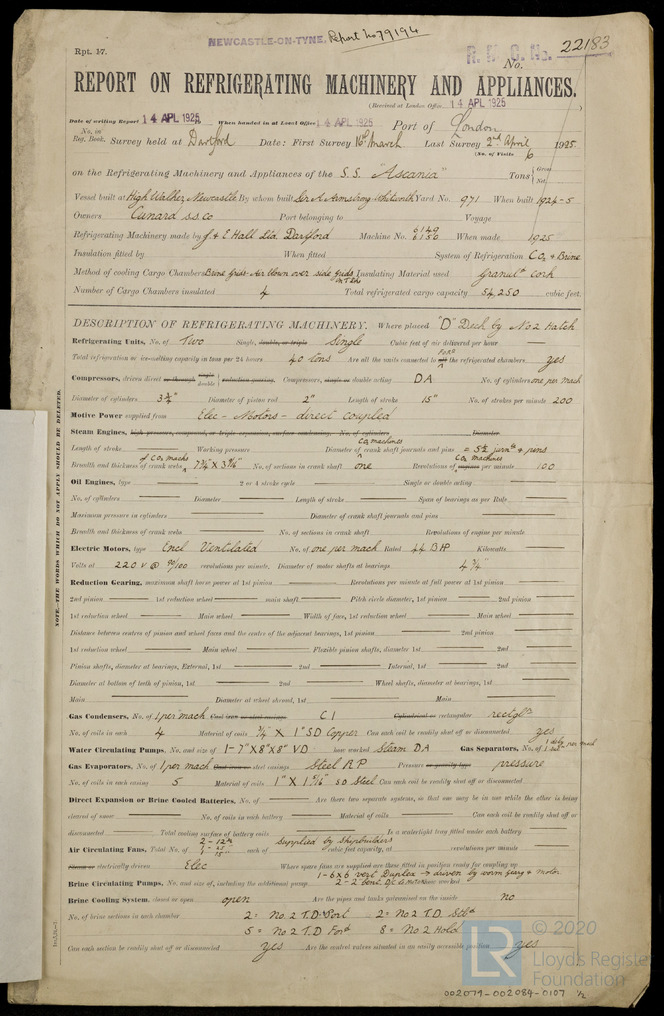 NEWCASTLE-ON-TYNE. Report No 79194
Rpt. 17.
R. M. C. No. 22183
No.
REPORT ON REFRIGERATING MACHINERY AND APPLIANCES.
(Received at London Office 14 APL 1925)
Date of writing Report 14 APL 1925 When handed in at Local Office 14 APL 1925 Port of London
No. in Reg. Book. Survey held at Dartford Date: First Survey 16th March Last Survey 2nd April 1925
(No. of Visits 6
on the Refrigerating Machinery and Appliances of the S.S. "Ascania" Tons { Gross Net
Vessel built at High Walker Newcastle By whom built Sir A. Armstrong Whitworth Yard No. 971 When built 1924-5
Owners Cunard S.S. Co Port belonging to Voyage
Refrigerating Machinery made by J & E Hall Ltd. Dartford Machine No. 6149 6150 When made 1925
Insulation fitted by When fitted System of Refrigeration CO2 & Brine
Method of cooling Cargo Chambers Brine Grids - Air blown over side grids in T. Dks Insulating Material used Granultd Cork
Number of Cargo Chambers insulated 4 Total refrigerated cargo capacity 54,250 cubic feet.
DESCRIPTION OF REFRIGERATING MACHINERY. Where placed "D" Deck by No 2 Hatch
Refrigerating Units, No. of Two Single, double, or triple Single Cubic feet of air delivered per hour
Total refrigeration or ice-melting capacity in tons per 24 hours 40 tons Are all the units connected to all the refrigerated chambers yes
Compressors, driven direct or through single double reduction gearing. Compressors, single or double acting DA No. of cylinders one per mach
Diameter of cylinders 3¾" Diameter of piston rod 2" Length of stroke 15" No. of strokes per minute 200
Motive Power supplied from Elec - Motors - direct coupled
Steam Engines, high pressure, compound, or triple expansion, surface condensing. No. of cylinders Diameter
Length of stroke Working pressure Diameter of CO2 machines crank shaft journals and pins = 5½ journls & pins
Breadth and thickness of crank webs of CO2 machs 7¾ X 3 9/16" No. of sections in crank shaft one Revolutions of CO2 machines engines per minute 100
Oil Engines, type 2 or 4 stroke cycle Single or double acting
No. of cylinders Diameter Length of stroke Span of bearings as per Rule
Maximum pressure in cylinders Diameter of crank shaft journals and pins
Breadth and thickness of crank webs No. of sections in crank shaft Revolutions of engine per minute
Electric Motors, type Encl Ventilated No. of one per mach Rated 44 BHP Kilowatts
Volts at 220 V @ 90/100 revolutions per minute, Diameter of motor shafts at bearings 4¾"
Reduction Gearing, maximum shaft horse power at 1st pinion Revolutions per minute at full power at 1st pinion
2nd pinion 1st reduction wheel main shaft Pitch circle diameter, 1st pinion 2nd pinion
1st reduction wheel Main wheel Width of face, 1st reduction wheel Main wheel
Distance between centres of pinion and wheel faces and the centre of the adjacent bearings, 1st pinion 2nd pinion
1st reduction wheel Main wheel Flexible pinion shafts, diameter 1st 2nd
Pinion shafts, diameter at bearings, External, 1st 2nd Internal, 1st 2nd
Diameter at bottom of teeth of pinion, 1st 2nd Wheel shafts, diameter at bearings, 1st
Main Diameter at wheel shroud, 1st Main
Gas Condensers, No. of 1 per mach Cast iron or steel casings C I Cylindrical or rectangular rectglr
No. of coils in each 4 Material of coils ¾" X 1" SD Copper Can each coil be readily shut off or disconnected yes
Water Circulating Pumps, No. and size of 1- 7"X8"X8" VD how worked Steam DA Gas Separators, No. of
Gas Evaporators, No. of 1 per mach Cast iron or steel casings Steel RP Pressure or gravity type pressure
No. of coils in each casing 5 Material of coils 1" X 1 5/16" SD Steel Can each coil be readily shut off or disconnected
Direct Expansion or Brine Cooled Batteries, No. of Are there two separate systems, so that one may be in use while the other is being
cleared of snow No. of coils in each battery Material of coils Can each coil be readily shut off or
disconnected Total cooling surface of battery coils Is a watertight tray fitted under each battery
Air Circulating Fans, Total No. of each of Supplied by Shipbuilders cubic feet capacity, at revolutions per minute
Steam or electrically driven Elec Where spare fans are supplied are these fitted in position ready for coupling up
Brine Circulating Pumps, No. and size of, including the additional pump 1-6x6 vert Duplex driven by worm gear & motor
Brine Cooling System, closed or open open Are the pipes and tanks galvanised on the inside no
No. of brine sections in each chamber 2 = No. 2 T.D. Port 2 = No 2 T.D. Stbd
5 = No 2 T.D Ford 8 = No 2 Hold
Can each section be readily shut off or disconnected yes Are the control valves situated in an easily accessible position yes
NOTE.—THE WORDS WHICH DO NOT APPLY SHOULD BE DELETED.
© 2020
LR Lloyd's Register
Foundation
002079-002084-0107 ½